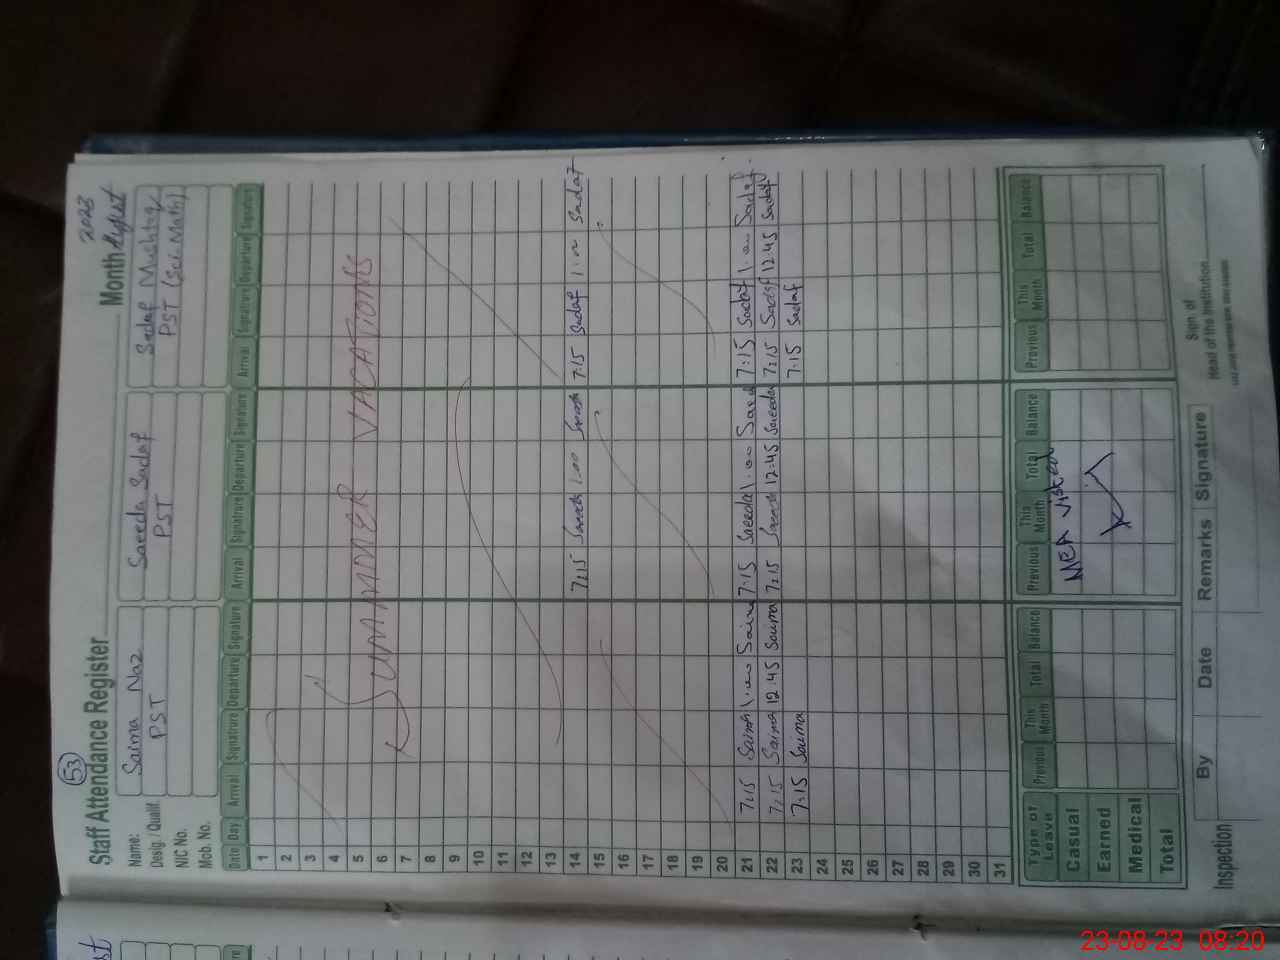 53
2023
Staff Attendance Register
Month August
Name: Saima Naz Saeeda Sadaf Sadaf Mushtaq
Desig. / Qualif. PST PST PST (Sci. Math)
NIC No.
Mob. No.
Date Day Arrival Signatrure Departure Signature Arrival Signatrure Departure Signature Arrival Signatrure Departure Signature
1
2
3
4
5
6 SUMMMER VACATIONS
7
8
9
10
11
12
13
14 7:15 1:00 7:15 Sadaf Sadaf
15
16
17
18
19
20
21 7:15 Saima 1:00 Saima 7:15 Saeeda 1:00 Saeed 7:15 Sadaf 1:00 Sadaf
22 7:15 Saima 12:45 Saima 7:15 Saeeda 12:45 Saeeda 7:15 Sadaf 12:45 Sadaf
23 7:15 Saima 7:15 Sadaf
24
25
26
27
28
29
30
31
Type of Leave Previous This Month Total Balance Previous This Month Total Balance Previous This Month Total Balance
Casual MEA visted
Earned
Medical
Total
Inspection By Date Remarks Signature
Sign of
Head of the Institution
23-08-23 08:20